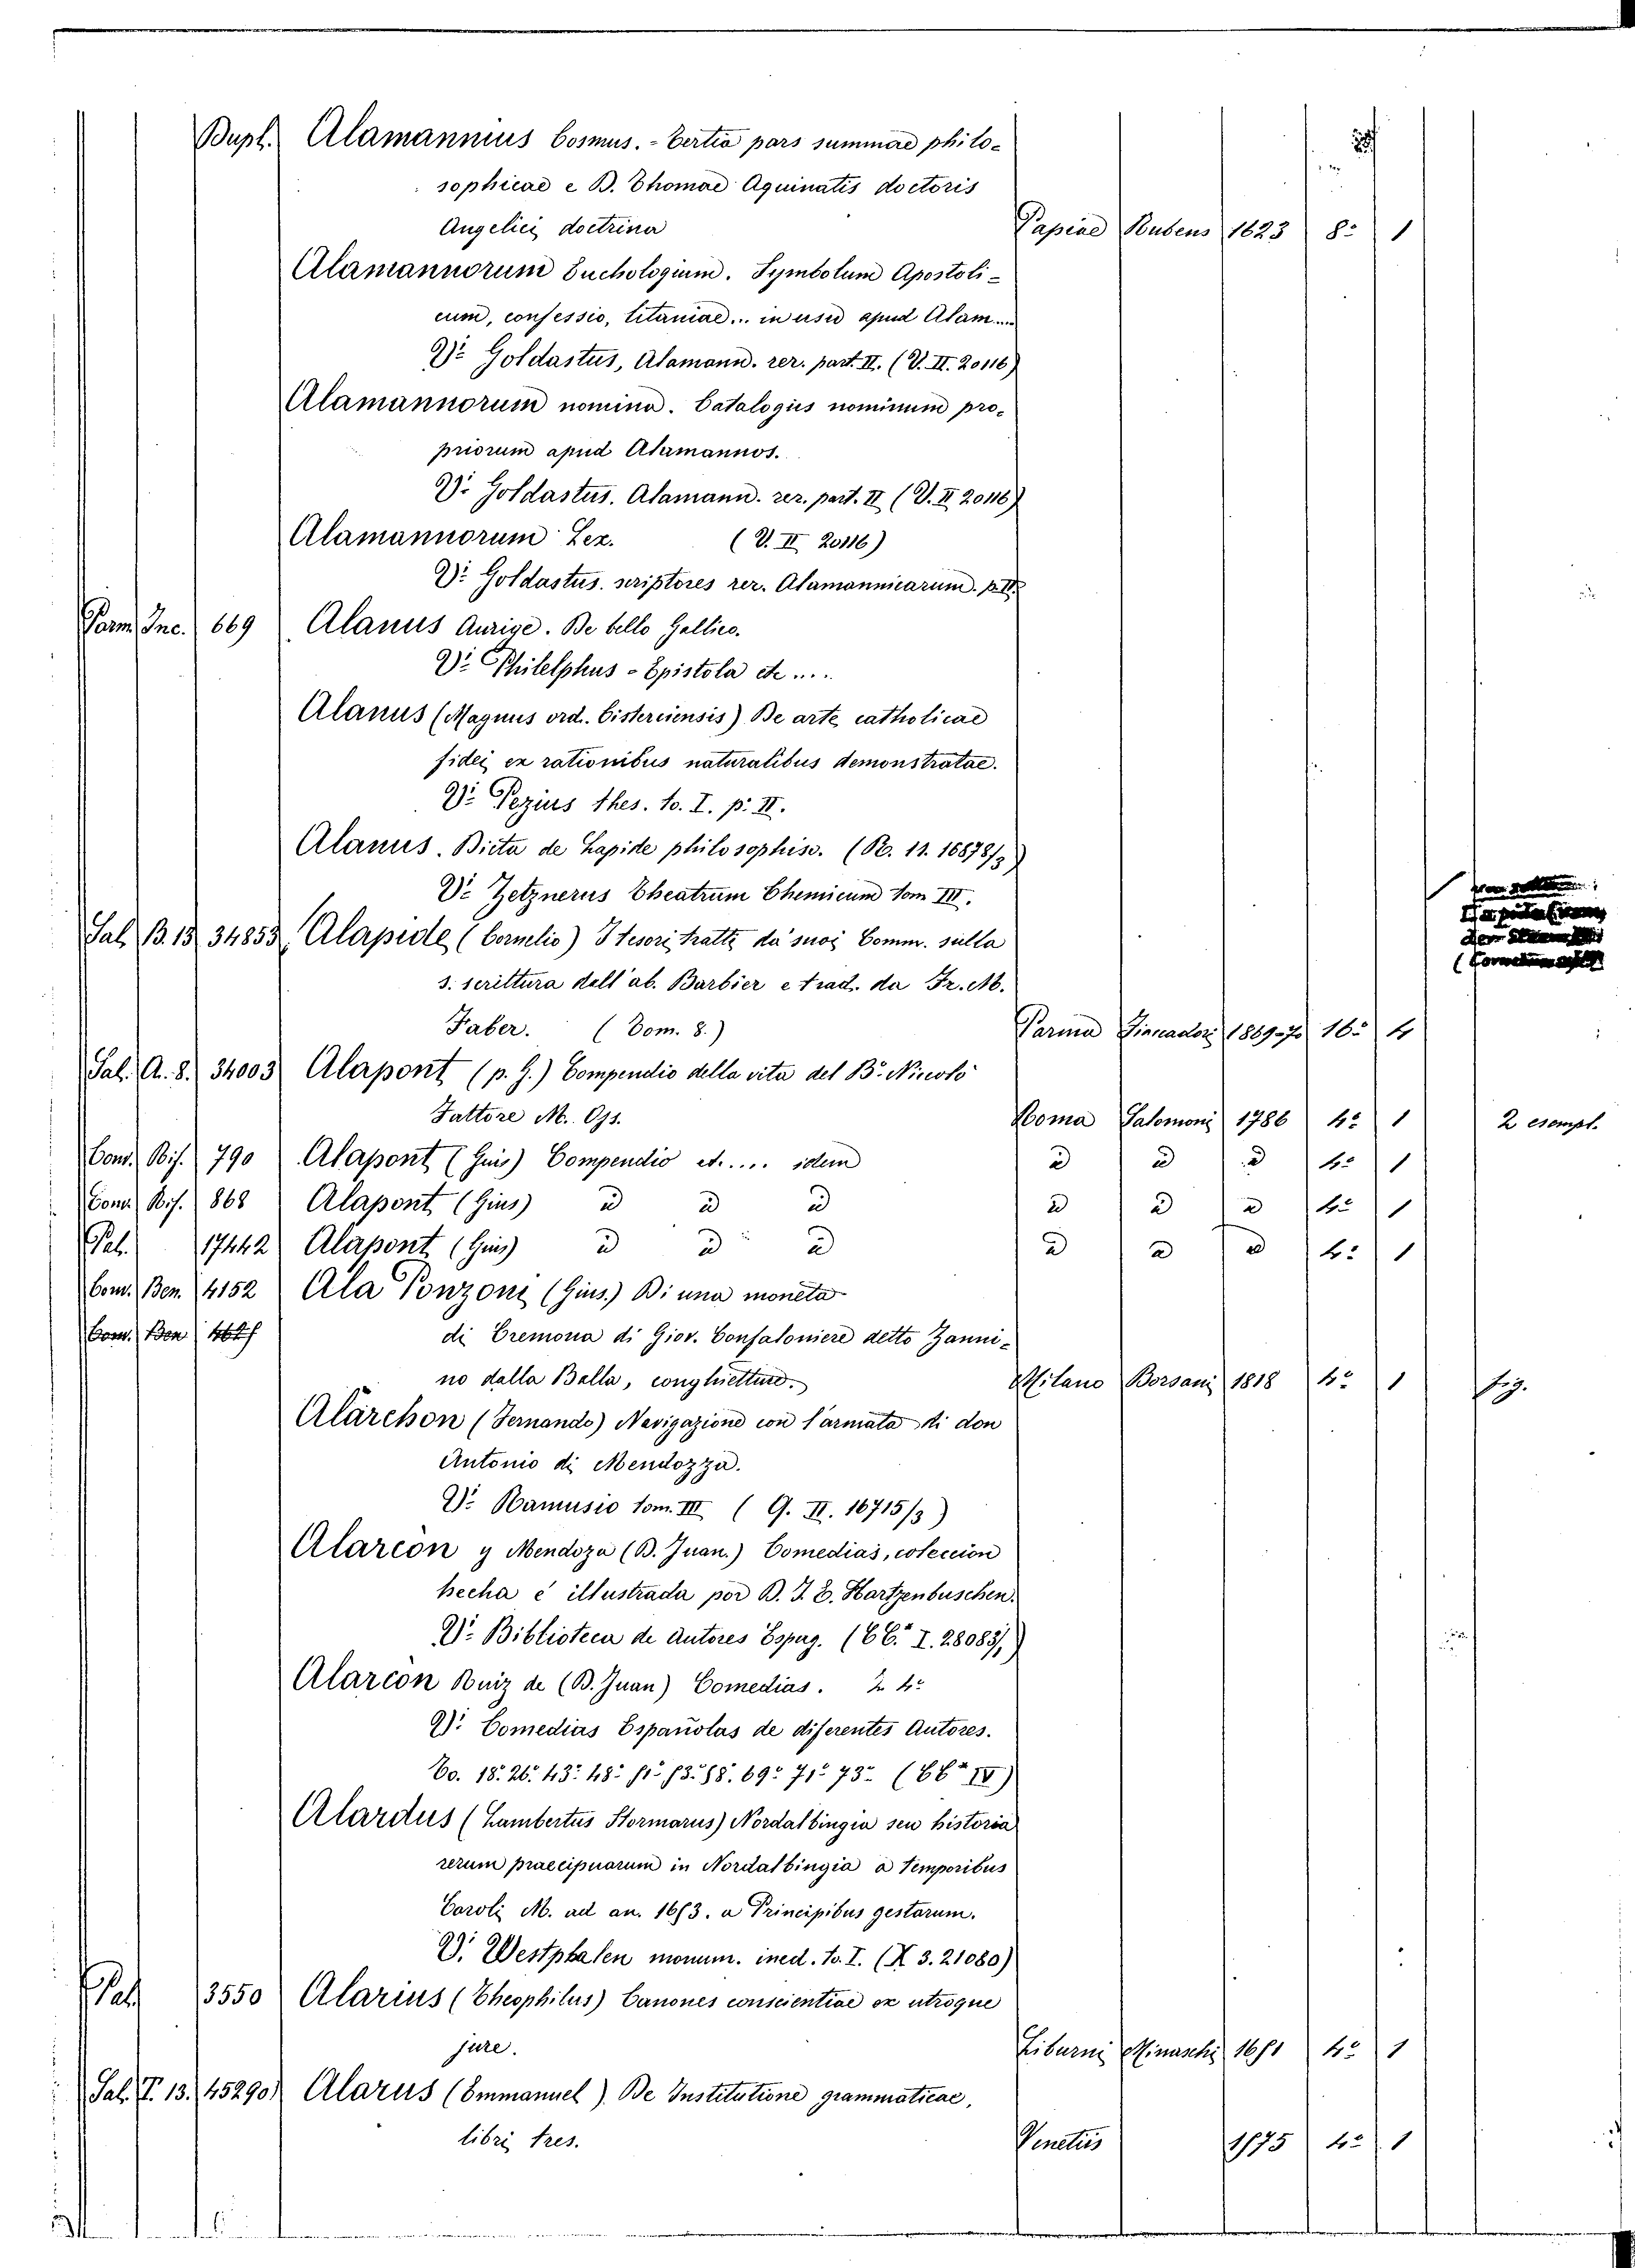 Dupl. Alamannius Cosmus. - Tertia pars summae philo-
sophicae e D. Thomae Aquinatis doctoris
Angelici doctrina Papiae Rubens 1623 8:° 1
Alamannorum Euchologium. Symbolum Apostoli-
cum, confessio, litaniae... in usu apud Alam....
V: Goldastus, Alamann. rer. part. II. (V. II. 20116)
Alamannorum nomina. Catalogus nominum pro-
priorum apud Alamannos.
V: Goldastus. Alamann. rer. part. II (V. II 20116)
Alamannorum Lex. (V. II 20116)
V: Goldastus. scriptores rer. Alamannicarum. p. II.
Parm. Inc. 669 Alanus Aurige. De bello Gallico.
V: Philelphus - Epistola etc ....
Alanus (Magnus ord. Cisterciensis) De arte catholicae
fidei ex rationibus naturalibus demonstratae.
V: Pezius thes. to. I. p. II.
Alanus. Dicta de Lapide philosophiso. (R. 11. 16878/3)
V: Zetznerus Theatrum Chemicum tom III.
Sal. B. 13 34853 Alapide (Cornelio) I tesori tratti da' suoi Comm. sulla
s. scrittura dell'ab. Barbier e trad. da Fr. M.
Faber. (Tom. 8.) Parma Fiaccadori 1869-70 16:° 4
Sal. A. 8. 34003 Alapont (p. G.) Compendio della vita del B.° Nicolò
Fattore M. Oss. Roma Salomoni 1786 4:° 1 2 esempl.
Cond. Ris. 790 Alapont (Gius) Compendio et..... idem id id id 4:° 1
Cond. Ris. 868 Alapont (Gius) id id id id id id 4:° 1
Pal. 17442 Alapont (Gius) id id id id id id 4:° 1
Com. Ben. 4152 Ala Ponzoni (Gius.) Di una moneta
Com. Ben
di Cremona di Giov. Confaloniere detto Zanni-
no dalla Balla, conghietture. Milano Borsani 1818 4:° 1 fig.
Alarchon (Fernando) Navigazione con l'armata di don
Antonio di Mendozza.
V: Ramusio tom. III (G. II. 16715/3)
Alarcòn y Mendoza (D. Juan.) Comedias, coleccion
hecha é illustrada por D. J. E. Hartzenbuschen.
V: Biblioteca de Autores Espag. (CC.* I. 28083/,)
Alarcòn Ruiz de (D. Juan) Comedias. 2 4:°
V: Comedias Españolas de diferentes Autores.
To. 18. 26. 43. 48. 51. 53. 58. 69. 71. 73. (CC* IV)
Alardus (Lambertus Stormarus) Nordalbingia seu historia
rerum praecipuarum in Nordalbingia a temporibus
Caroli M. ad an. 1653. a Principibus gestarum.
V. Westphalen monum. ined. to. I. (X 3. 21080)
Pal 3550 Alarius (Theophilus) Canones conscientiae ex utroque
jure. Liburni Minaschi 1691 4:° 1
Sal. T. 13. 45290 Alarus (Emmanuel) De Institutione grammaticae,
libri tres. Venetiis 1575 4:° 1